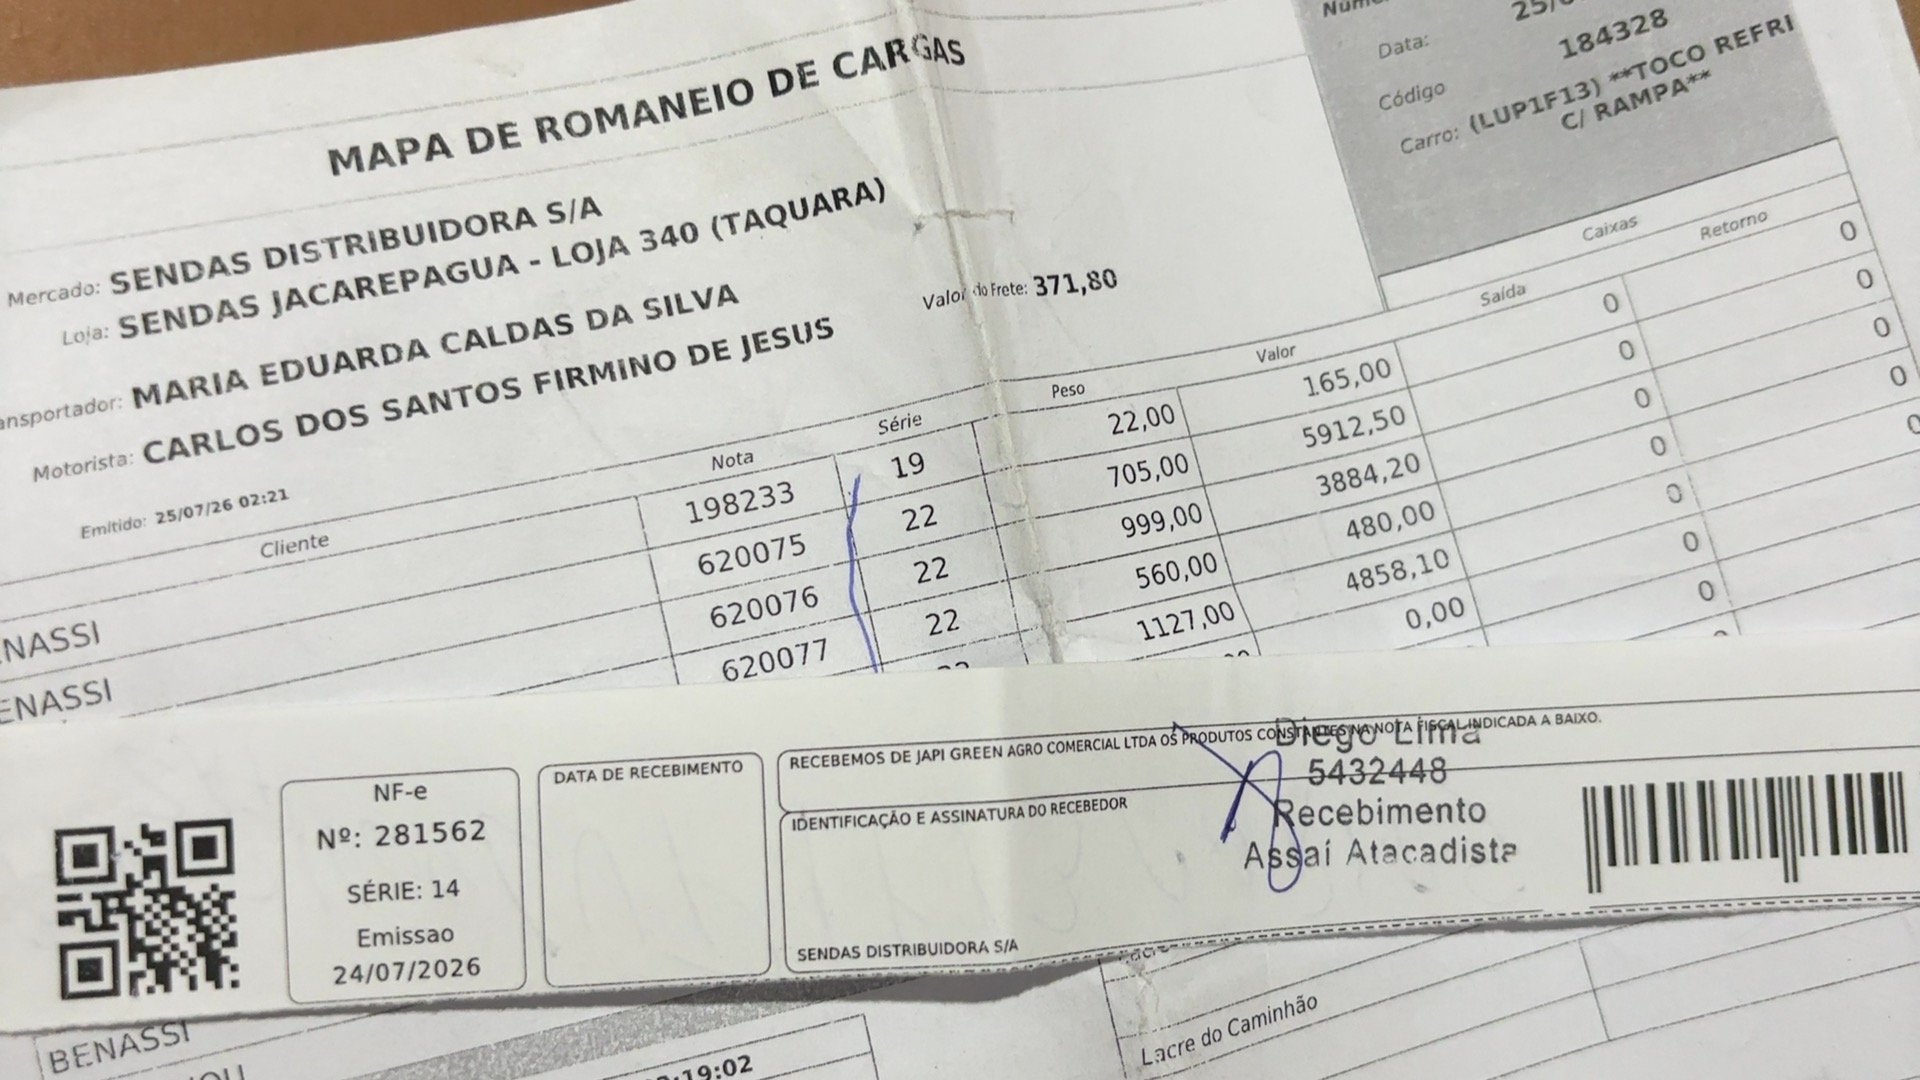 MAPA DE ROMANEIO DE CARGAS
Data:
Código 184328
Carro: (LUP1F13) **TOCO REFRI
C/ RAMPA**
Mercado: SENDAS DISTRIBUIDORA S/A
Loja: SENDAS JACAREPAGUA - LOJA 340 (TAQUARA)
MARIA EDUARDA CALDAS DA SILVA
Motorista: CARLOS DOS SANTOS FIRMINO DE JESUS
Valor do Frete: 371,80
Emitido: 25/07/26 02:21
Caixas
Cliente Nota Série Peso Valor Saída Retorno
198233 19 22,00 165,00 0 0
620075 22 705,00 5912,50 0 0
620076 22 999,00 3884,20 0 0
620077 22 560,00 480,00 0 0
1127,00 4858,10 0
0,00 0
0
NF-e
Nº: 281562
SÉRIE: 14
Emissao
24/07/2026
DATA DE RECEBIMENTO
RECEBEMOS DE JAPI GREEN AGRO COMERCIAL LTDA OS PRODUTOS CONSTANTES NA NOTA FISCAL INDICADA A BAIXO.
IDENTIFICAÇÃO E ASSINATURA DO RECEBEDOR
SENDAS DISTRIBUIDORA S/A
Diego Lima
5432448
Recebimento
Assaí Atacadista
BENASSI
Lacre do Caminhão